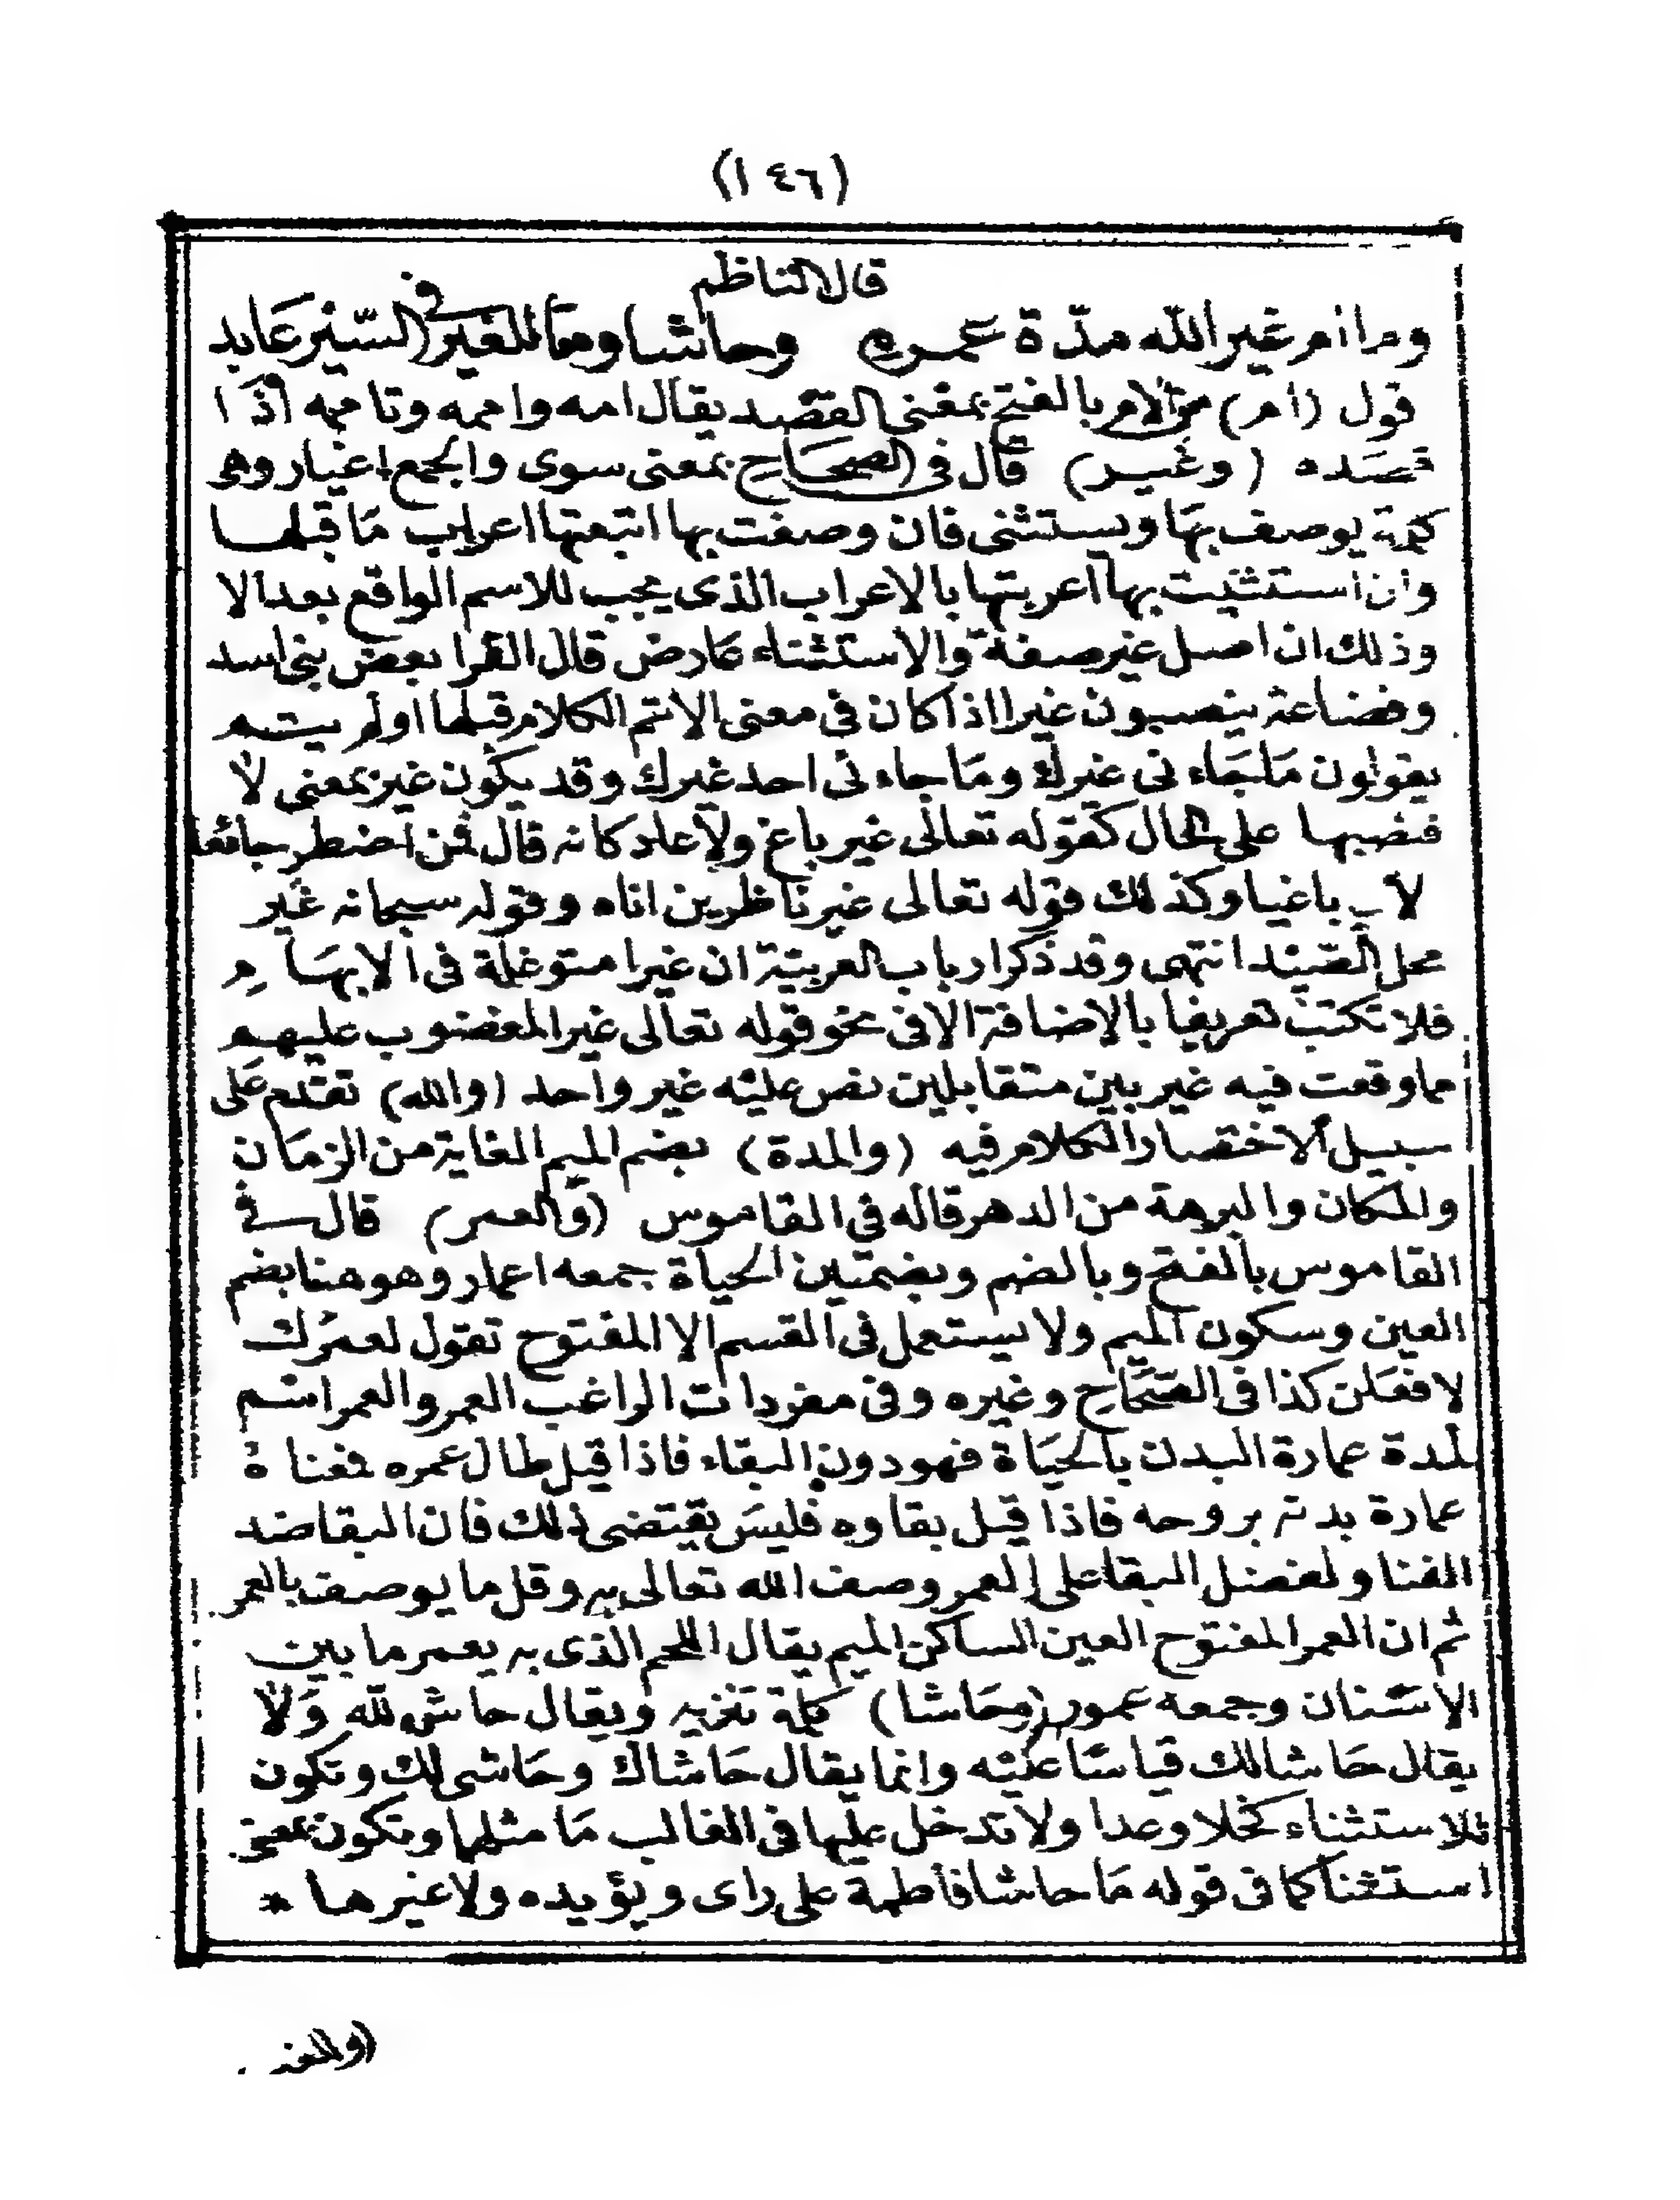 (١٤٦)
قال الناظم
وما ام غير الله مدّة عمره وحاشا وما للغير في السّير عابد
قول (ام) من الام بالفتح بمعنى القصد يقال امه واممه وتاممه اذا
قصده (وغير) قال في الصحاح بمعنى سوى والجمع اغيار وهى
كلمة يوصف بها ويستثنى فان وصفت بها اتبعتها اعراب ما قبلها
وان استثنيت بها اعربتها بالاعراب الذى يجب للاسم الواقع بعد الا
وذلك ان اصل غير صفة والاستثناء عارض قال الفرا بعض بنى اسد
وقضاعة ينصبون غيرا اذا كان فى معنى الا تم الكلام قبلها او لم يتم
يقولون ما جاء نى غيرك وما جاء نى احد غيرك وقد يكون غير بمعنى لا
فنصبها على الحال كقوله تعالى غير باغ ولا عاد كانه قال فمن اضطر جائعا
لا باغيا وكذلك قوله تعالى غير ناظرين اناه وقوله سبحانه غير
محل الصيد انتهى وقد ذكر ارباب العربية ان غيرا متوغلة فى الابهام
فلا تكتب تعريفا بالاضافة الا فى نحو قوله تعالى غير المغضوب عليهم
مما وقعت فيه غير بين متقابلين نص عليه غير واحد (والله) تقدم على
سبيل الاختصار الكلام فيه (والمدة) بضم الميم الغاية من الزمان
والمكان والبرهة من الدهر قاله في القاموس (والعمر) قال في
القاموس بالفتح وبالضم وبضمتين الحياة جمعه اعمار وهو هنا بضم
العين وسكون الميم ولا يستعمل فى القسم الا المفتوح تقول لعمرك
لا فعلن كذا فى الصحاح وغيره وفى مفردات الراغب العمر والعمر اسم
لمدة عمارة البدن بالحياة فهو دون البقاء فاذا قيل طال عمره فمعناه
عمارة بدنه بروحه فاذا قيل بقاوه فليس يقتضى ذلك فان البقا ضد
الفنا ولفضل البقا على العمر وصف الله تعالى به وقل ما يوصف بالعمر
ثم ان العمر المفتوح العين الساكن الميم يقال اللحم الذى به يعمر ما بين
الاسنان وجمعه عمور (وحاشا) كلمة تنزيه ويقال حاش لله ولا
يقال حاشا لك قياسا عليه وانما يقال حاشاك وحاشى لك وتكون
للاستثناء كخلا وعدا ولا تدخل عليها فى الغالب ما مثلهما وتكون بمعنى
استثنا كما فى قوله ما حاشا فاطمة على راى ويؤيده ولا غيرها *
(والغير